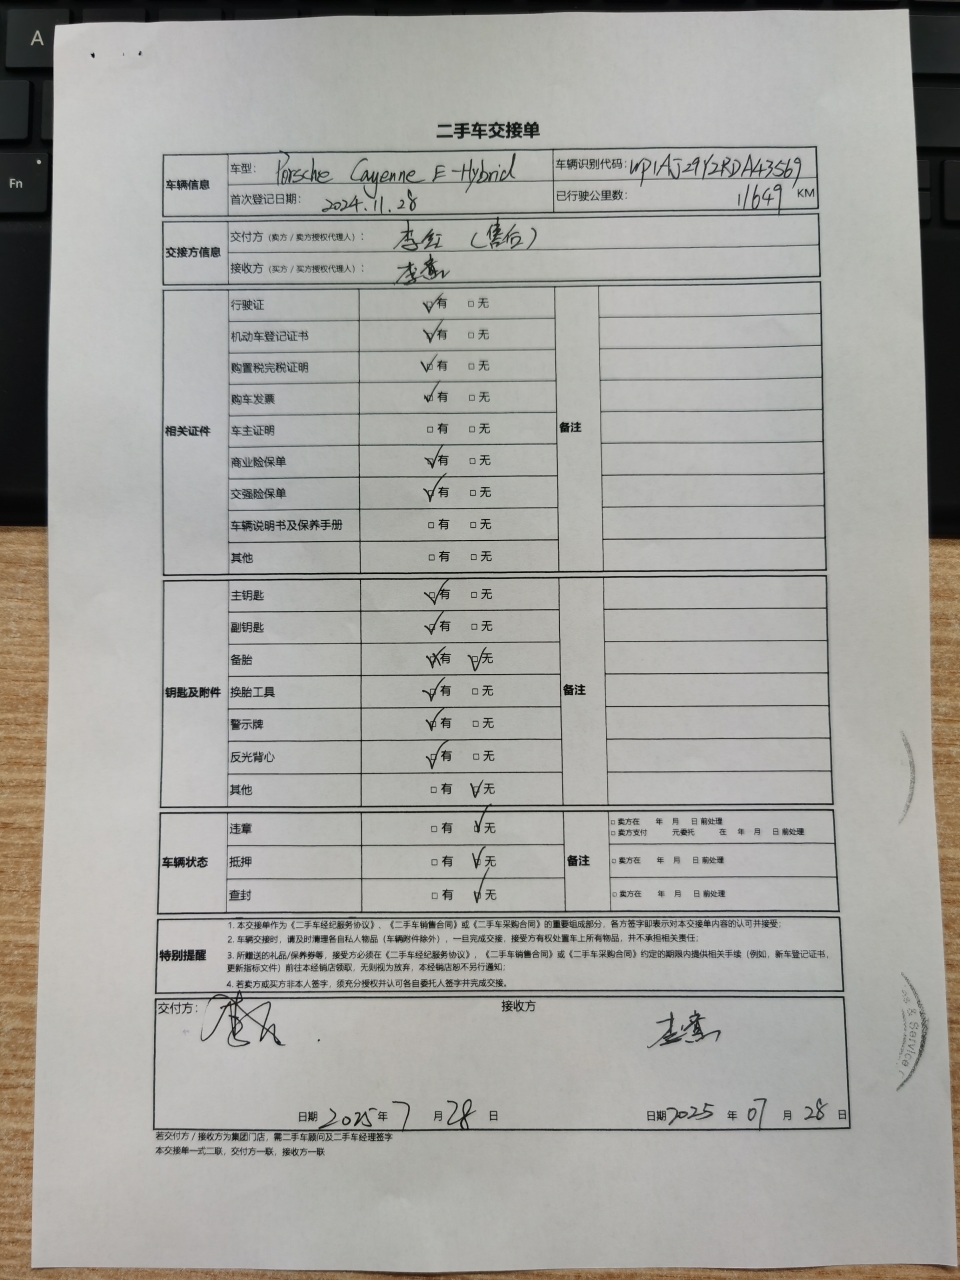 A
Fn
二手车交接单
车辆信息
车型： Porsche Cayenne E-Hybrid 车辆识别代码：WP1AJ29Y2RDA43569
首次登记日期： 2024.11.28 已行驶公里数： 11649 KM
交接方信息
交付方（卖方 / 卖方授权代理人）： 李红 （售后）
接收方（买方 / 买方授权代理人）： 李
相关证件
行驶证 ☑有 □无
机动车登记证书 ☑有 □无
购置税完税证明 ☑有 □无
购车发票 ☑有 □无
车主证明 □有 □无
备注
商业险保单 ☑有 □无
交强险保单 ☑有 □无
车辆说明书及保养手册 □有 □无
其他 □有 □无
钥匙及附件
主钥匙 ☑有 □无
副钥匙 ☑有 □无
备胎 ☒有 ☑无
换胎工具 ☑有 □无
备注
警示牌 ☑有 □无
反光背心 ☑有 □无
其他 □有 ☑无
车辆状态
违章 □有 ☑无
□ 卖方在 年 月 日 前处理
□ 卖方支付 元委托 在 年 月 日 前处理
抵押 □有 ☑无 备注 □ 卖方在 年 月 日 前处理
查封 □有 ☑无 □ 卖方在 年 月 日 前处理
特别提醒
1. 本交接单作为《二手车经纪服务协议》、《二手车销售合同》或《二手车采购合同》的重要组成部分，各方签字即表示对本交接单内容的认可并接受；
2. 车辆交接时，请及时清理各自私人物品（车辆附件除外），一旦完成交接，接受方有权处置车上所有物品，并不承担相关责任；
3. 所赠送的礼品/保养券等，接受方必须在《二手车经纪服务协议》、《二手车销售合同》或《二手车采购合同》约定的期限内提供相关手续（例如，新车登记证书，
更新指标文件）前往本经销店领取，无则视为放弃，本经销店恕不另行通知；
4. 若卖方或买方非本人签字，须充分授权并认可各自委托人签字并完成交接。
交付方： 接收方
李
日期 2025 年 7 月 28 日 日期 2025 年 07 月 28 日
若交付方 / 接收方为集团门店，需二手车顾问及二手车经理签字
本交接单一式二联，交付方一联，接收方一联
& Service